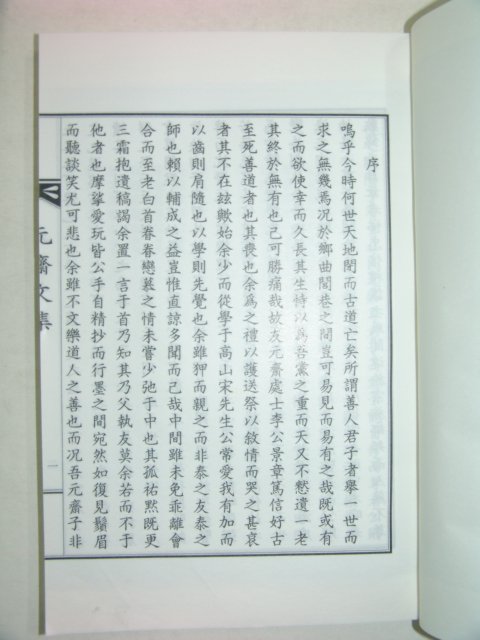 序
嗚乎今時何世天地閉而古道亡矣所謂善人君子者舉一世而
求之無幾焉况於鄉曲閭巷之間豈可易見而易有之哉既或有
之而欲使幸而久長其生恃以爲吾黨之重而天又不憖遺一老
其終於無有也已可勝痛哉故友元齋處士李公景章篤信好古
至死善道者也其喪也余爲之禮以護送祭以敘情而哭之甚哀
者其不在玆歟始余少而從學于高山宋先生公常愛我有加而
以齒則肩隨也以學則先覺也余雖狎而親之而非泰之友泰之
師也賴以輔成之益豈惟直諒多聞而已哉中間雖未免乖離會
合而至老白首眷眷戀慕之情未嘗少弛于中也其孤祐黙既更
三霜抱遺稿謁余置一言于首乃知其乃父執友莫余若而不于
他者也摩挲愛玩皆公手自精抄而行墨之間宛然如復見鬚眉
而聽談笑尤可悲也余雖不文樂道人之善也而况吾元齋子非
元齋文集
一